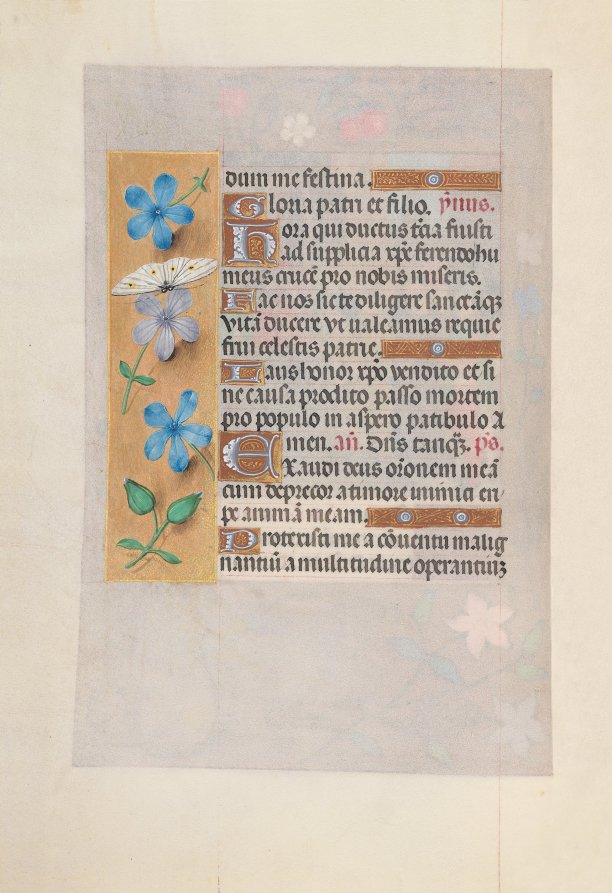 dum me festina.
Gloria patri et filio. ym̄nus.
Hora qui ductus t̄cia fuisti
ad supplicia xp̄e ferendo hu
meris crucē pro nobis miseris.
Fac nos sic te diligere sanctāqꝫ
vitā ducere vt ualeamus requie
frui celestis patrie.
Laus honor xp̄o vendito et si
ne causa prodito passo mortem
pro populo in aspero patibulo A
men. añ. Dñs tanqꝫ. p̄s.
EXaudi deus or̄onem meā
cum deprecor a timore inimici eri
pe animā meam.
Protexisti me a cōuentu malig
nantiū a multitudine operantiuꝫ